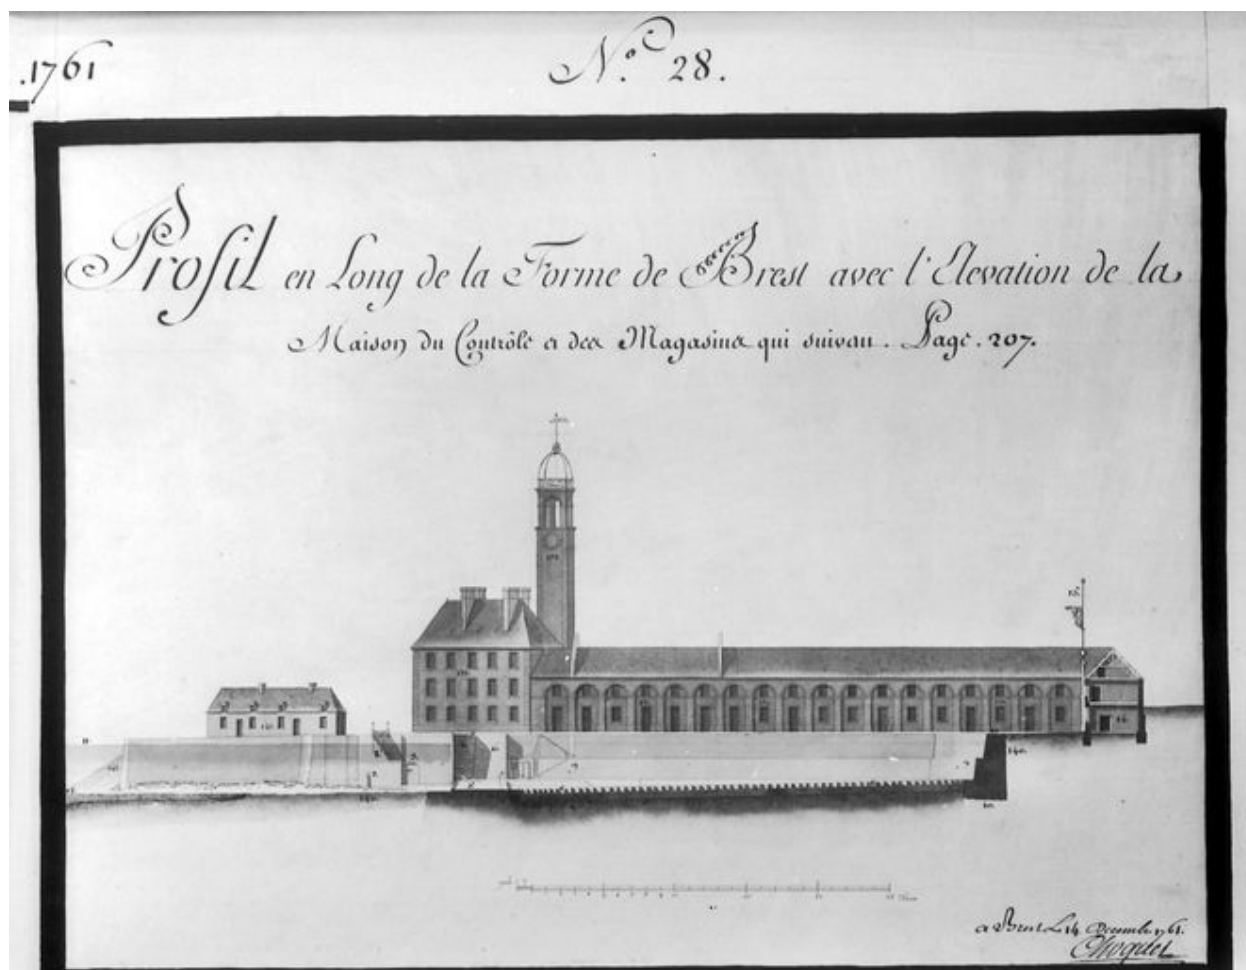 .1761
N.º 28.
Profil en Long de la Forme de Brest avec l'Elevation de la
Maison du Contrôle et des Magasins qui suivent. Page. 207.
a Brest Le 14 Decembre 1761.
Choquet